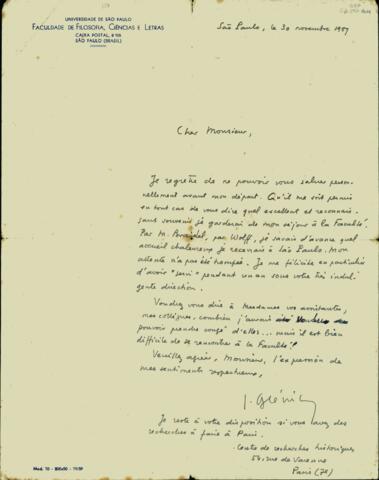 UNIVERSIDADE DE SÃO PAULO
FACULDADE DE FILOSOFIA, CIÊNCIAS E LETRAS
CAIXA POSTAL, 8 105
SÃO PAULO (BRASIL)
São Paulo, le 30 novembre 1957
Cher Monsieur,
Je regrette de ne pouvoir vous saluer person-
nellement avant mon départ. Qu'il me soit permis
en tout cas de vous dire quel excellent et reconnais-
sant souvenir je garderai de mon séjour à la Faculté.
Par M. par Wolff, je savais d'avance quel
accueil chaleureux je recevrais à São Paulo. Mon
attente n'a pas été trompée. Je me félicite en particulier
d'avoir "servi" pendant un an sous votre très indul-
gente direction.
Voudrez vous dire à Mesdames vos assistantes,
mes collègues, combien j'aurais
pouvoir prendre congé d'elles... mais il est bien
difficile de se rencontrer à la Faculté!
Veuillez agréer, Monsieur, l'expression de
mes sentiments respectueux,
Je reste à votre disposition si vous avez des
recherches à faire à Paris.
Centre de recherches historiques
54, rue de Varenne
Paris (7e)